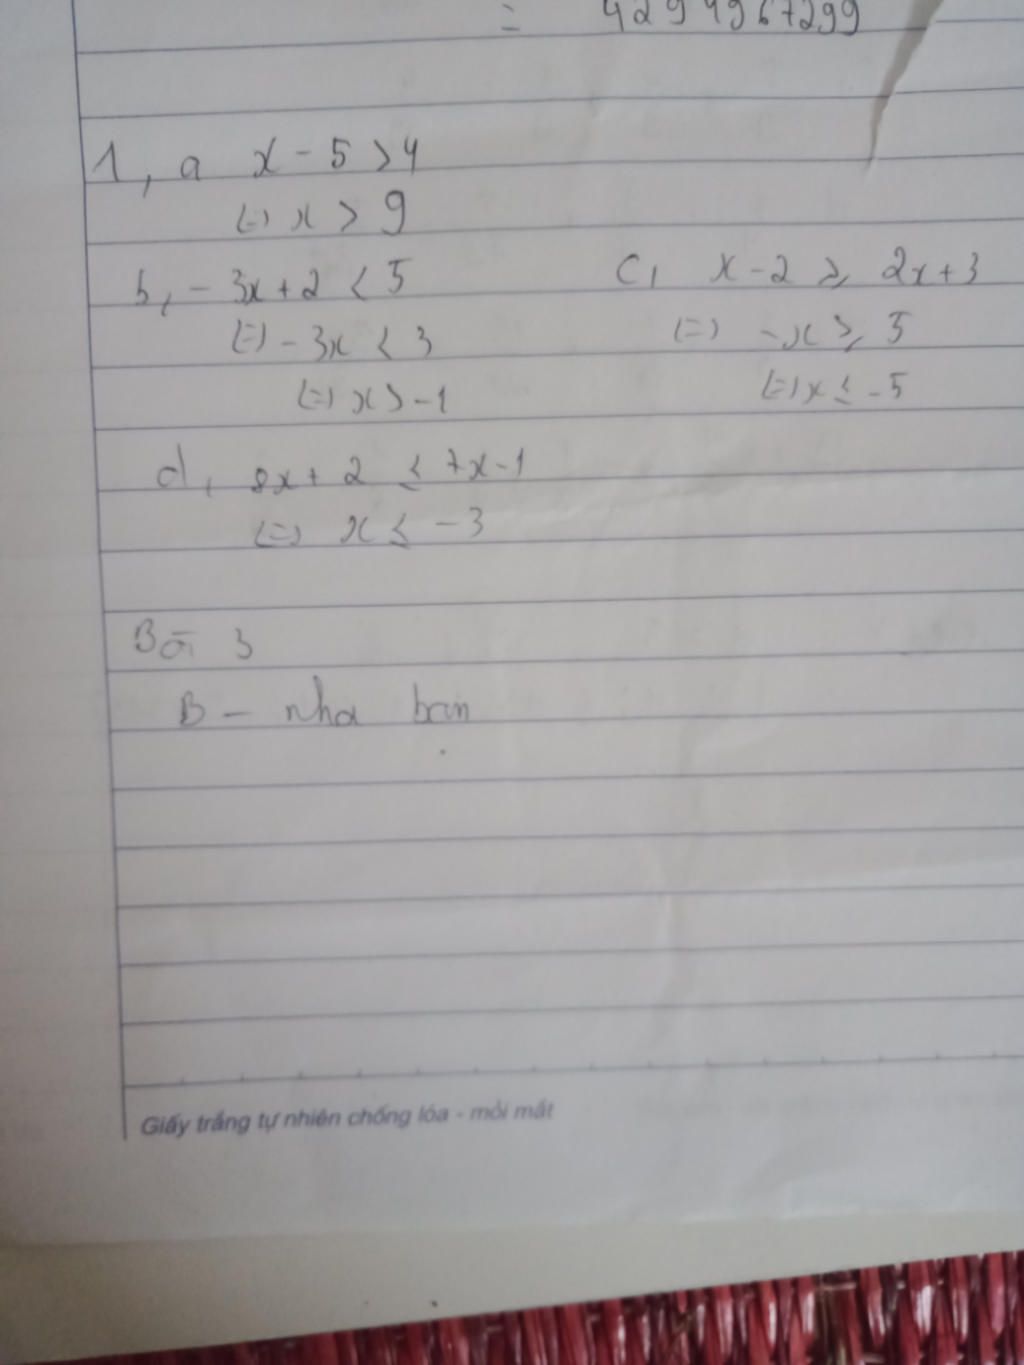 = 4294967299
1, a x - 5 > 4
(=) x > 9
b, - 3x + 2 < 5
(=) - 3x < 3
(=) x > -1
c, x - 2 ≥ 2x + 3
(=) -x ≥ 5
(=) x ≤ -5
d, 8x + 2 ≤ 7x - 1
(=) x ≤ -3
Bài 3
B - nha ban
Giấy trắng tự nhiên chống lóa - mỏi mắt